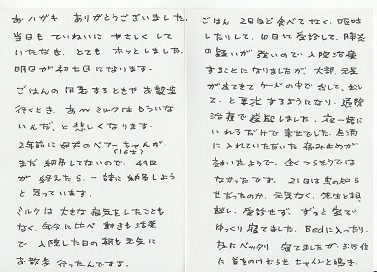 おハガキ ありがとうございました。
当日も ていねいに やさしくして
いただき、とても ホッとしました。
明日が 初七日になります。
ごはんの 用意するときや お散歩
行くとき、あ〜 ミルクは もういな
いんだ、と 悲しくなります。
2年前に 母犬の ベアーちゃんが
(16才)
まだ 納骨してないので、49日
が 終えたら、一諸に 納骨しよう
と 思っています。
ミルクは 大きな 病気をしたことも
なく、年令に比べ 動きも 活発
で 入院した日の 朝も 元気に
お散歩 行ったんですよ。
ごはん 2日ほど 食べてなく、嘔吐
したりして、10日に 受診して、膵炎
の 疑いが 強いので 入院治療
することになりましたが、大部 元気
が 出てきて ケージの中で 出して、出し
て、と 要求するようになり、通院
治療で 様子見ました。夜 一諸に
いれるだけで 幸せでした。点滴
に 入れていただいた 痛み止めが
効いたようで、全くつらそうでは
なかったです。21日は 虫の知ら
せだったのか、元気なく、先生と相
談し、受診せず、ずっと 家で
ゆっくり 寝てました。Bedに入ったり、